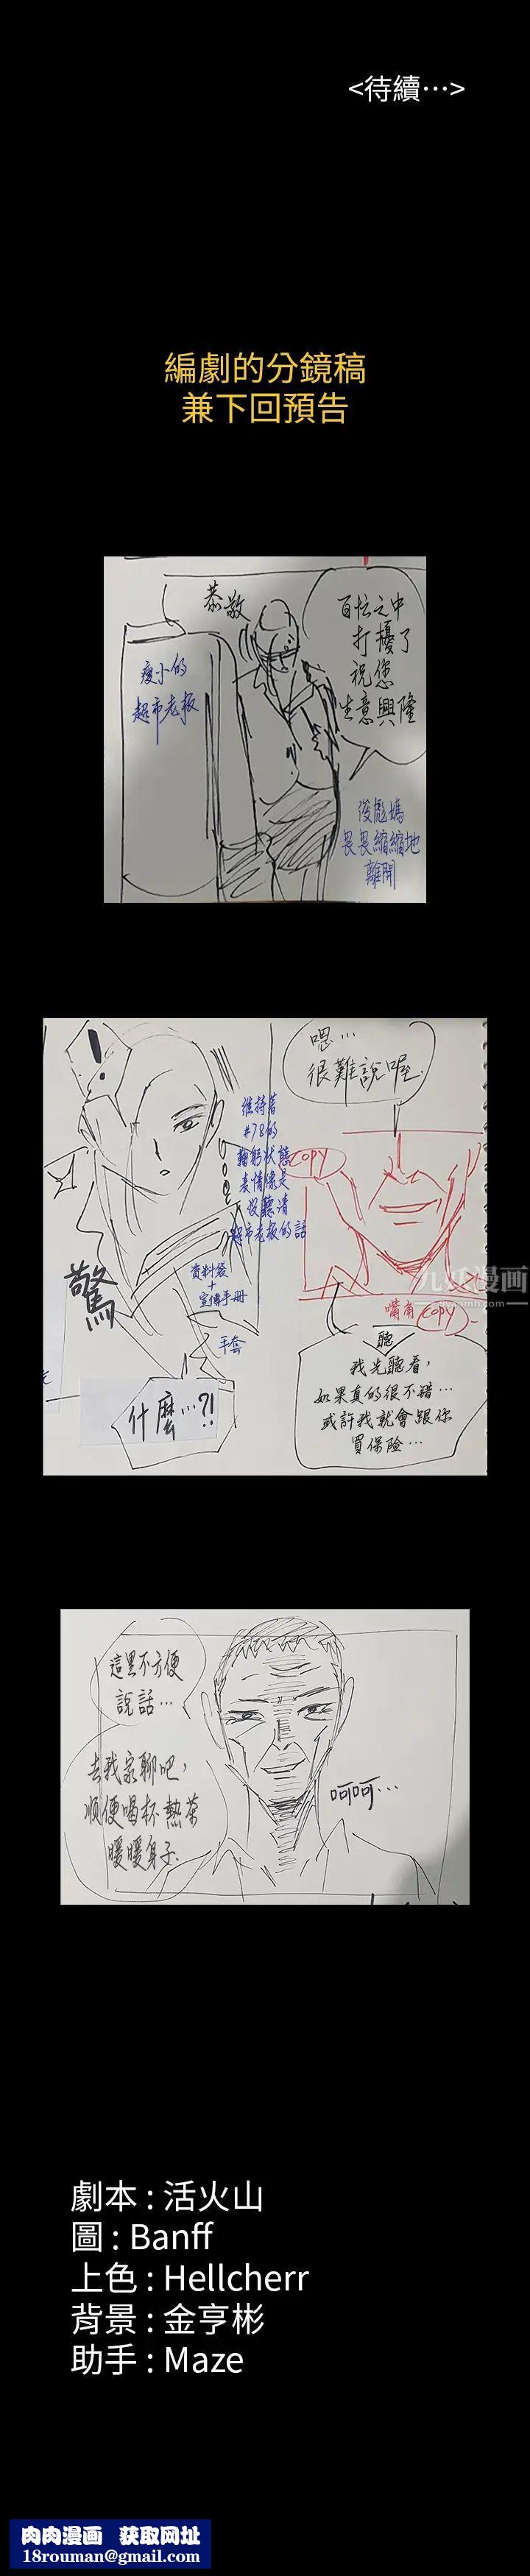 <待續…>
編劇的分鏡稿
兼下回預告
恭敬
百忙之中
打擾了
祝您
生意興隆
瘦小的
超市老板
俊彪媽
畏畏縮縮地
離開
!
嗯…
很難說喔.
維持著
#78的
鞠躬狀態
表情像是
沒聽清
超市老板的話
COPY
資料袋
+
宣傳手冊
手套
驚
什麼…?!
嘴角 COPY
九妖漫画
聽
我先聽看,
如果真的很不錯…
或許我就會跟你
買保險…
這里不方便
說話…
去我家聊吧,
順便喝杯熱茶
暖暖身子.
呵呵…
劇本 : 活火山
圖 : Banff
上色 : Hellcherr
背景 : 金亨彬
助手 : Maze
肉肉漫画 获取网址
18rouman@gmail.com